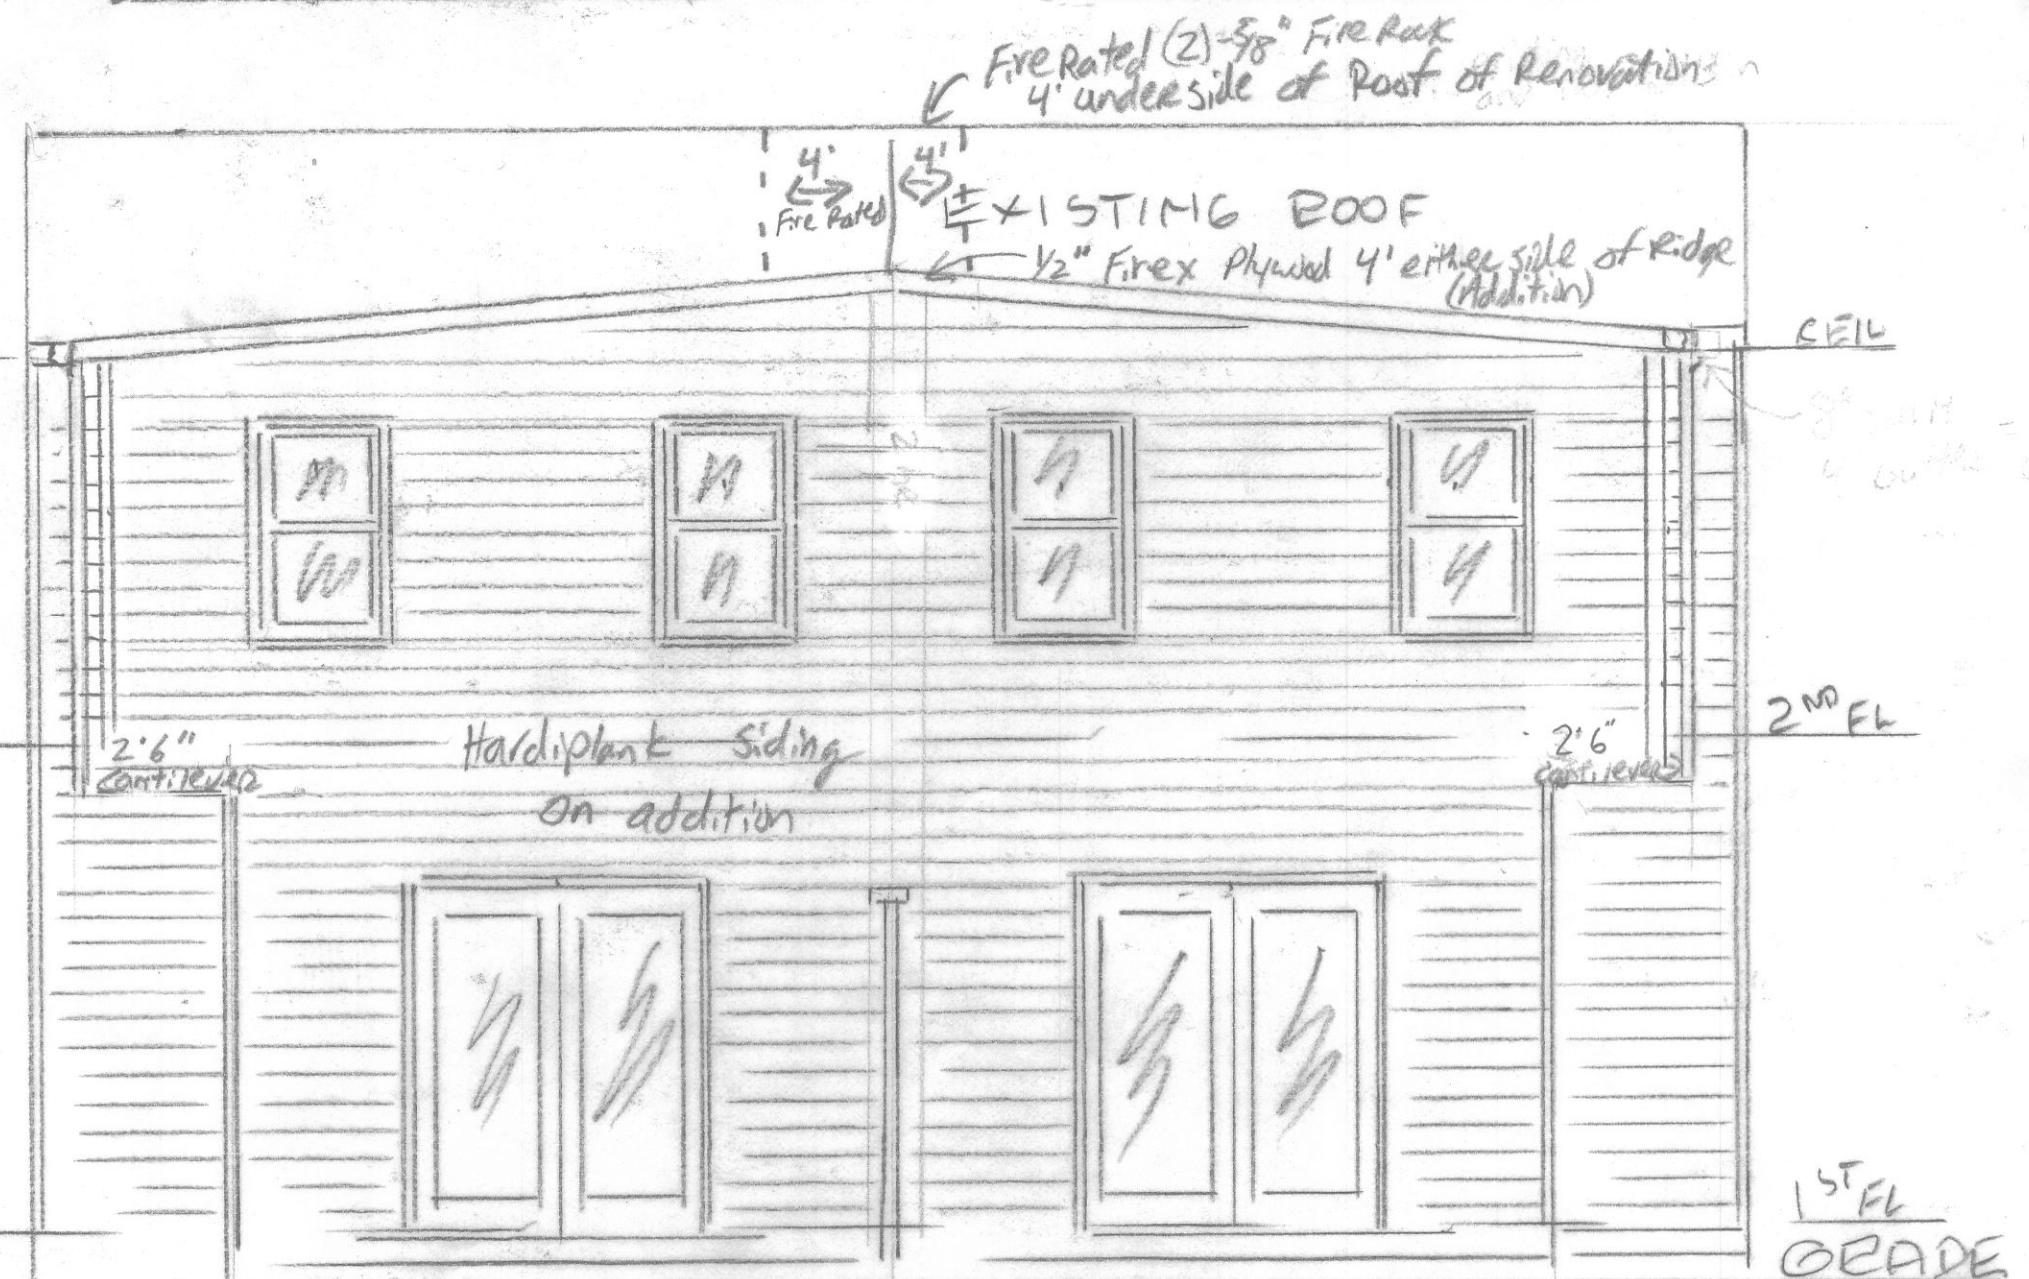 Fire Rated (2)-5/8" Fire Rock
4' underside of Roof of Renovation
4'
4'
Fire Rated
EXISTING ROOF
1/2" Firex Plywood 4' either side of Ridge
(Addition)
CEIL
2ND FL
2'6"
cantilever
Hardiplank siding
on addition
2'6"
cantilever
1ST FL
GRADE